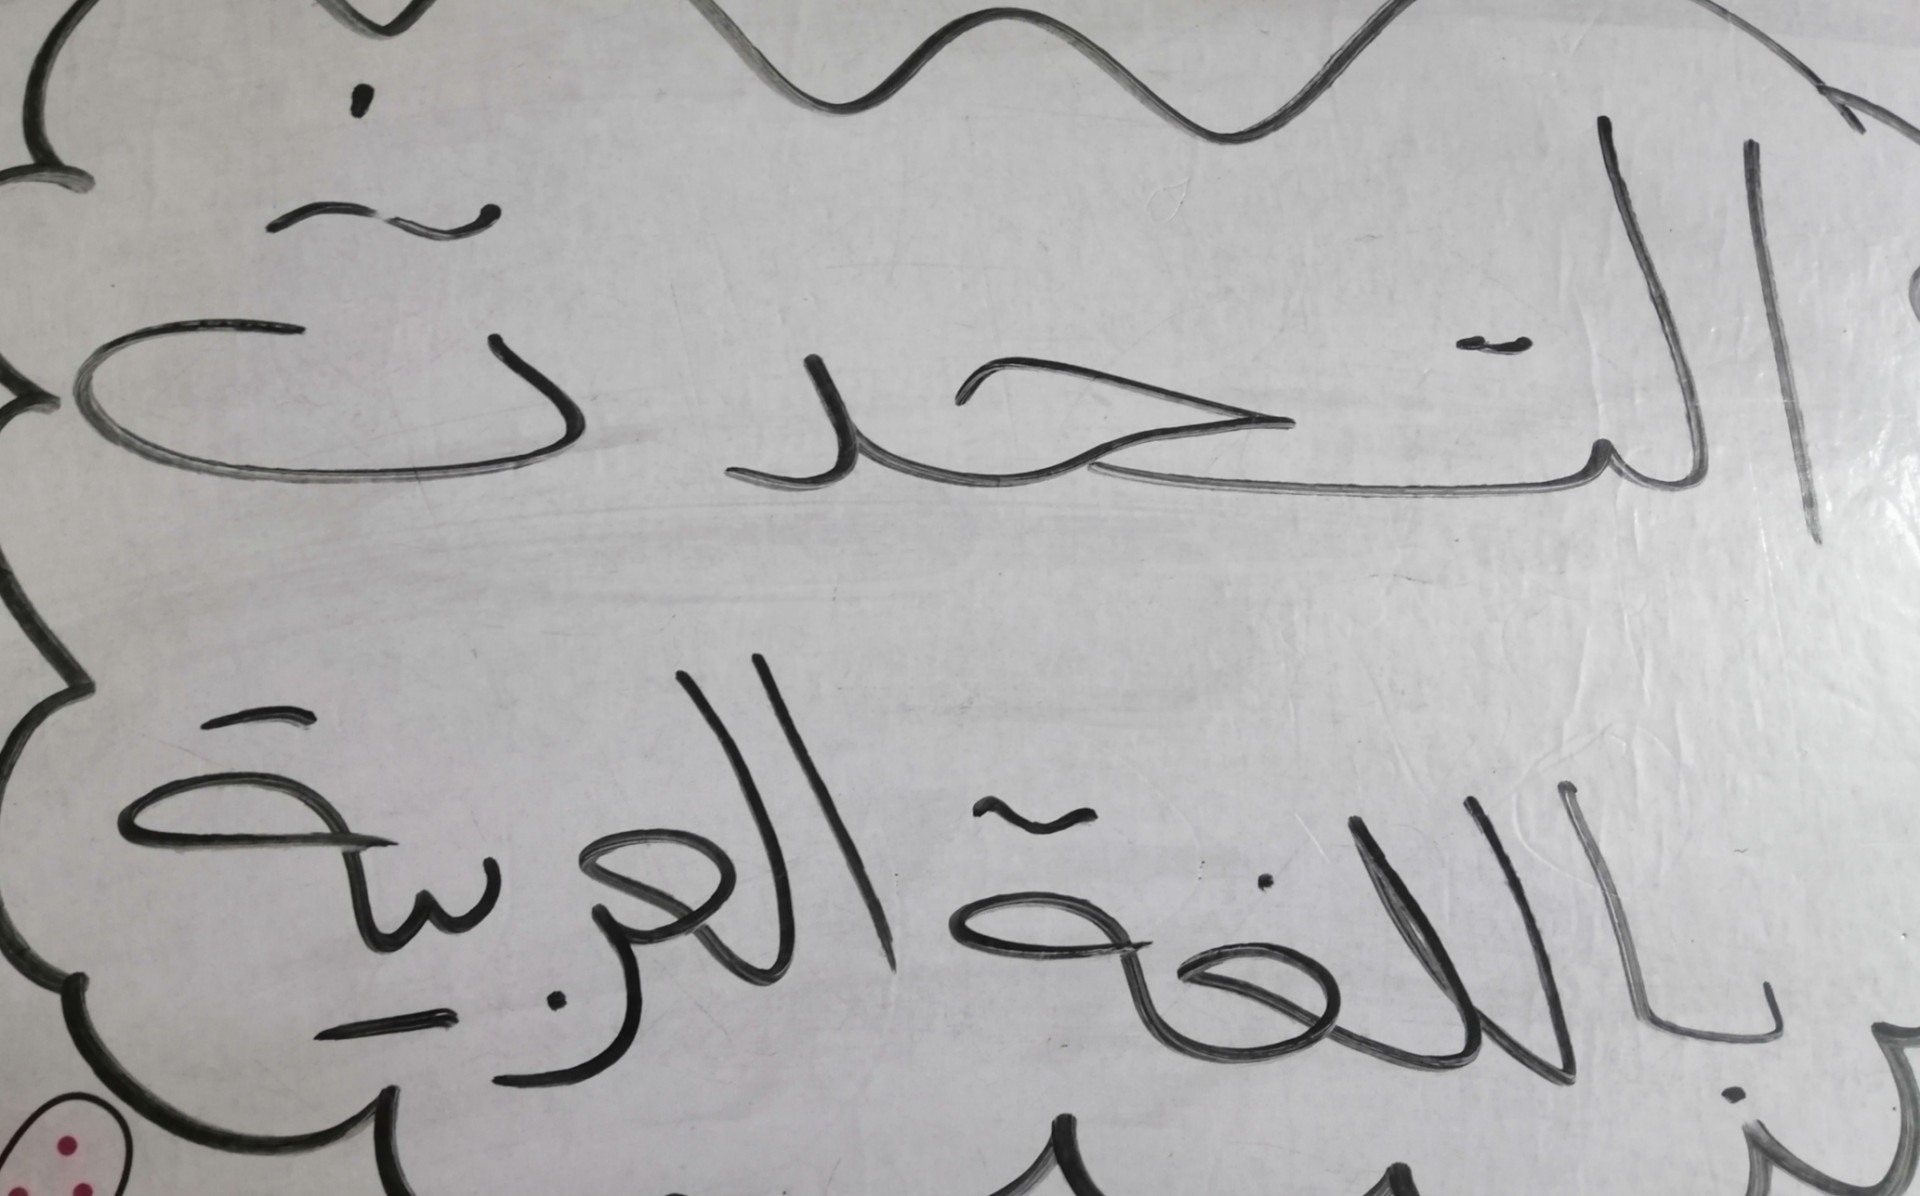 التحدث
باللغة العربية